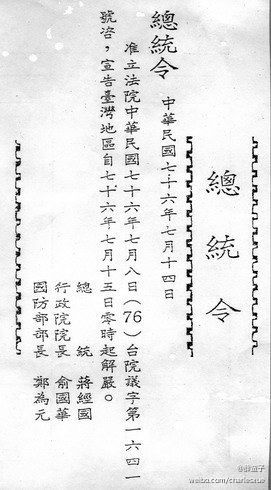 總統令
總統令　中華民國七十六年七月十四日
准立法院中華民國七十六年七月八日（76）台院議字第一六四一
號咨，宣告臺灣地區自七十六年七月十五日零時起解嚴。
總　統　蔣經國
行政院院長　俞國華
國防部部長　鄭為元
weibo.com/charlesxue